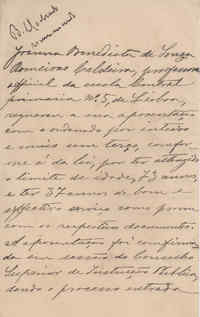 Joanna Benedicta de Souza
Caldeira, professora
official da escola Central
primaria Nº 5, de Lisboa,
requereu a sua aposentação
com o ordenado por inteiro
e mais um terço, confor-
me é da lei, por ter attingido
o limite de idade, 73 annos,
e ter 37 annos de bom e
effectivo serviço como provou
com os respectivos documentos.
A aposentação foi confirma-
da em sessão do Conselho
Superior de Instrucção Publica,
dando o processo entrada